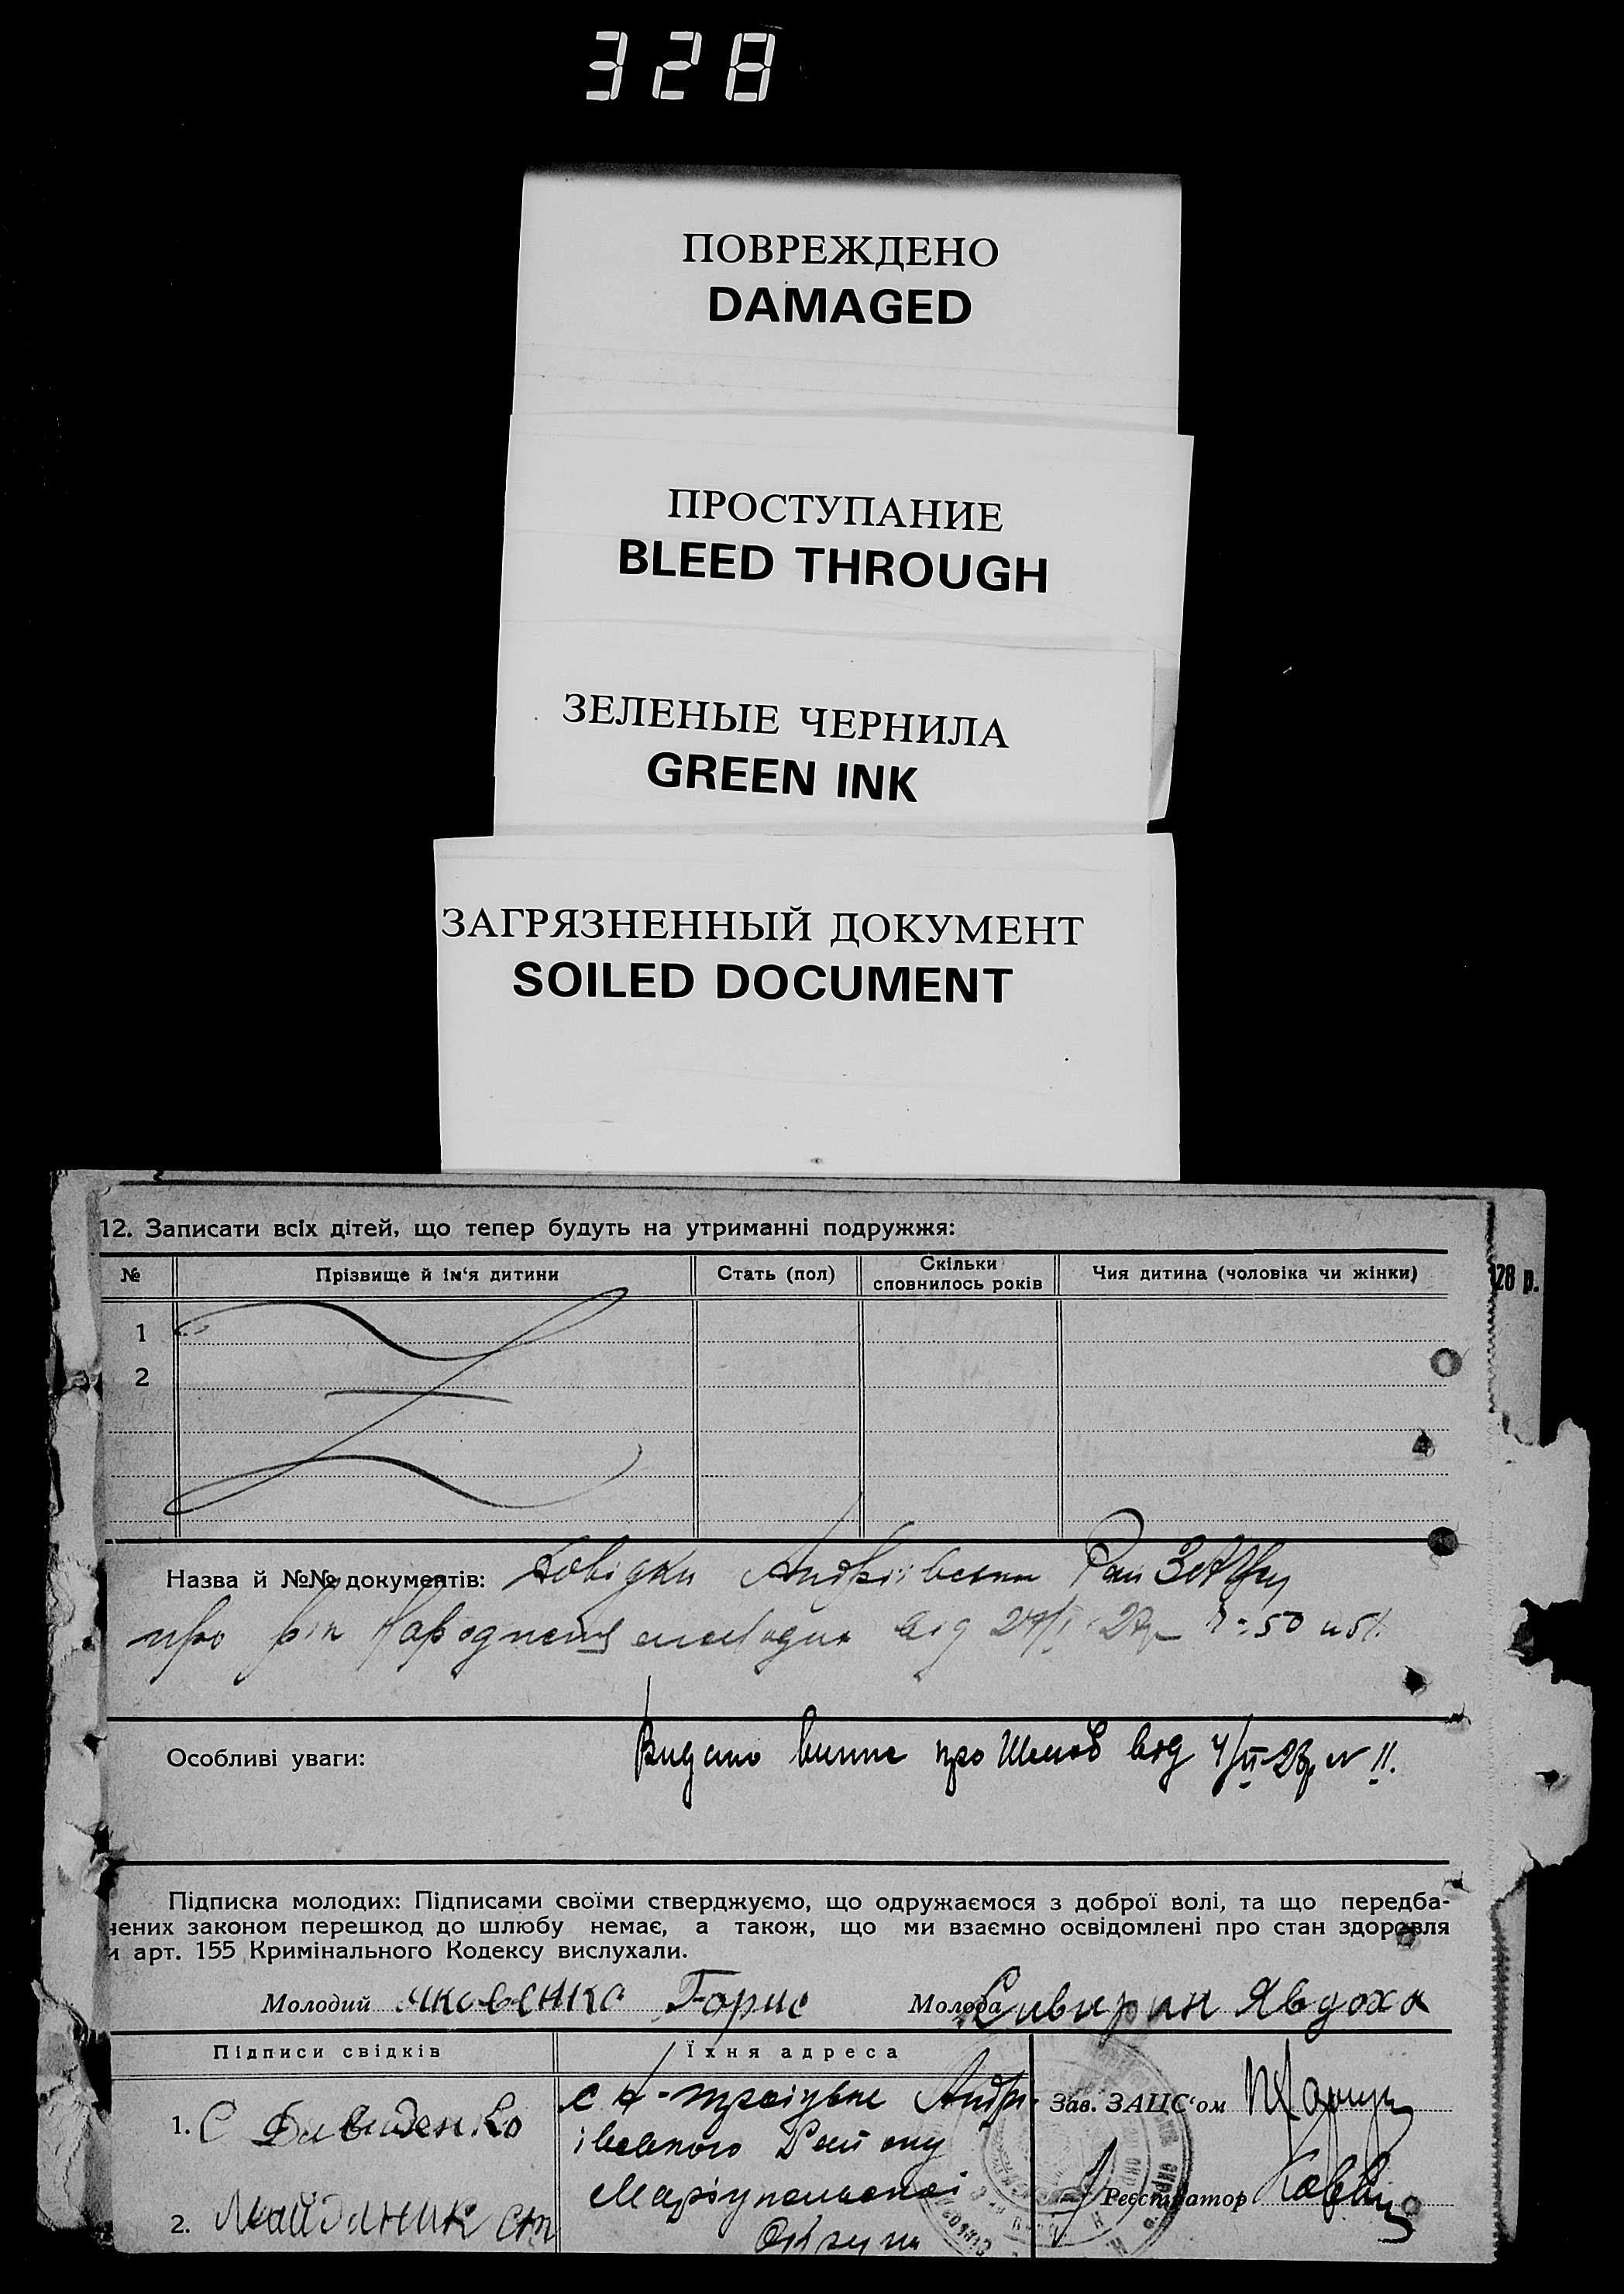 328
ПОВРЕЖДЕНО
DAMAGED
ПРОСТУПАНИЕ
BLEED THROUGH
ЗЕЛЕНЫЕ ЧЕРНИЛА
GREEN INK
ЗАГРЯЗНЕННЫЙ ДОКУМЕНТ
SOILED DOCUMENT
12. Записати всіх дітей, що тепер будуть на утриманні подружжя:
№ Прізвище й ім'я дитини Стать (пол) Скільки сповнилось років Чия дитина (чоловіка чи жінки)
28 р.
1
2
Назва й №№ документів: Довідки Андріївськ Рай ЗАГСу
про рік народження молодих від
Особливі уваги: Видано випис про Шлюб від 4/II-28р № 11.
Підписка молодих: Підписами своїми стверджуємо, що одружаємося з доброї волі, та що передба-
чених законом перешкод до шлюбу немає, а також, що ми взаємно освідомлені про стан здоровля
и арт. 155 Кримінального Кодексу вислухали.
Молодий Яковенко Борис Молода Сивирин Явдоха
Підписи свідків Їхня адреса
1. С Давиденко
с К-Троіцьке Андрі-
ївського Району
Маріупольскої
Округи
Зав. ЗАЦС'ом
2. Майданик
Реєстратор